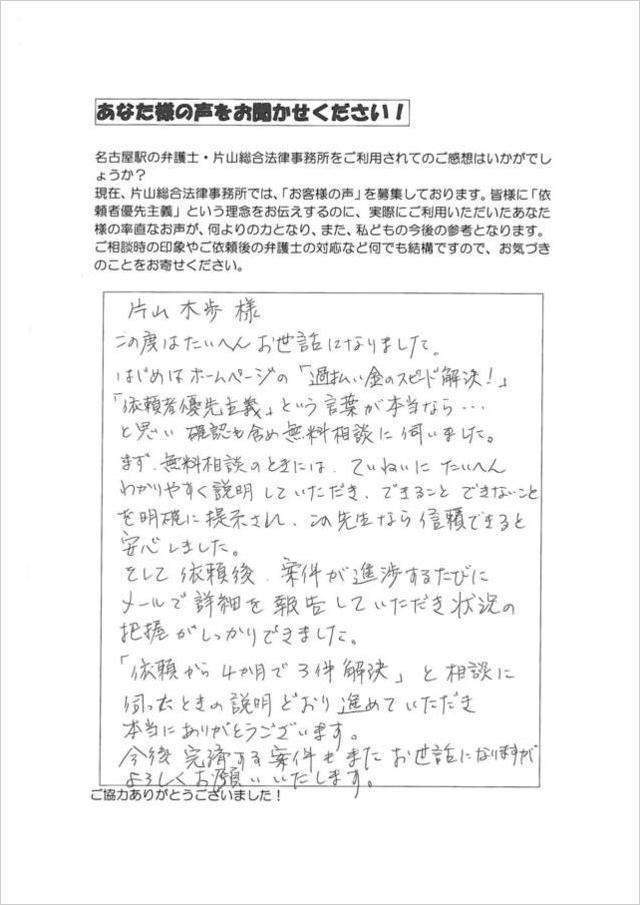 あなた様の声をお聞かせください！
名古屋駅の弁護士・片山総合法律事務所をご利用されてのご感想はいかがでし
ょうか？
現在、片山総合法律事務所では、「お客様の声」を募集しております。皆様に「依
頼者優先主義」という理念をお伝えするのに、実際にご利用いただいたあなた
様の率直なお声が、何よりの力となり、また、私どもの今後の参考となります。
ご相談時の印象やご依頼後の弁護士の対応など何でも結構ですので、お気づき
のことをお寄せください。
片山木歩様
この度はたいへんお世話になりました。
はじめはホームページの「過払い金のスピード解決！」
「依頼者優先主義」という言葉が本当なら・・・
と思い確認も含め無料相談に伺いました。
まず、無料相談のときには、ていねいにたいへん
わかりやすく説明していただき、できることできないこと
を明確に提示され、この先生なら信頼できると
安心しました。
そして依頼後、案件が進渉するたびに
メールで詳細を報告していただき状況の
把握がしっかりできました。
「依頼から4か月で3件解決」と相談に
伺ったときの説明どおり進めていただき
本当にありがとうございます。
今後完済する案件もまたお世話になりますが
よろしくお願いいたします。
ご協力ありがとうございました！